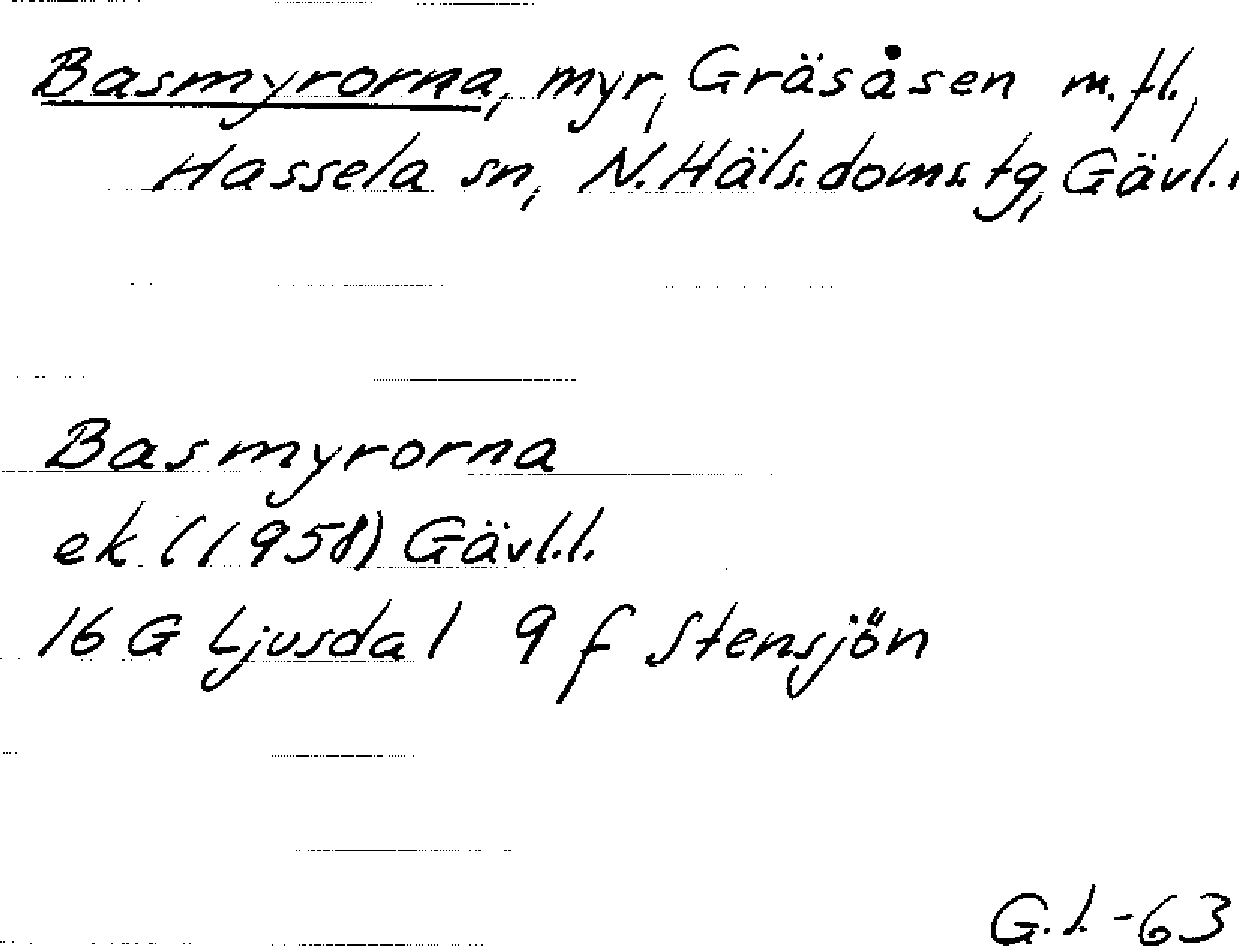 Basmyrorna, myr, Gräsåsen m.fl.,
Hassela sn, N.Häls.doms.tg, Gävl.l
Basmyrorna
ek (1958) Gävl.l.
16 G Ljusdal 9 f Stensjön
G.L.-63